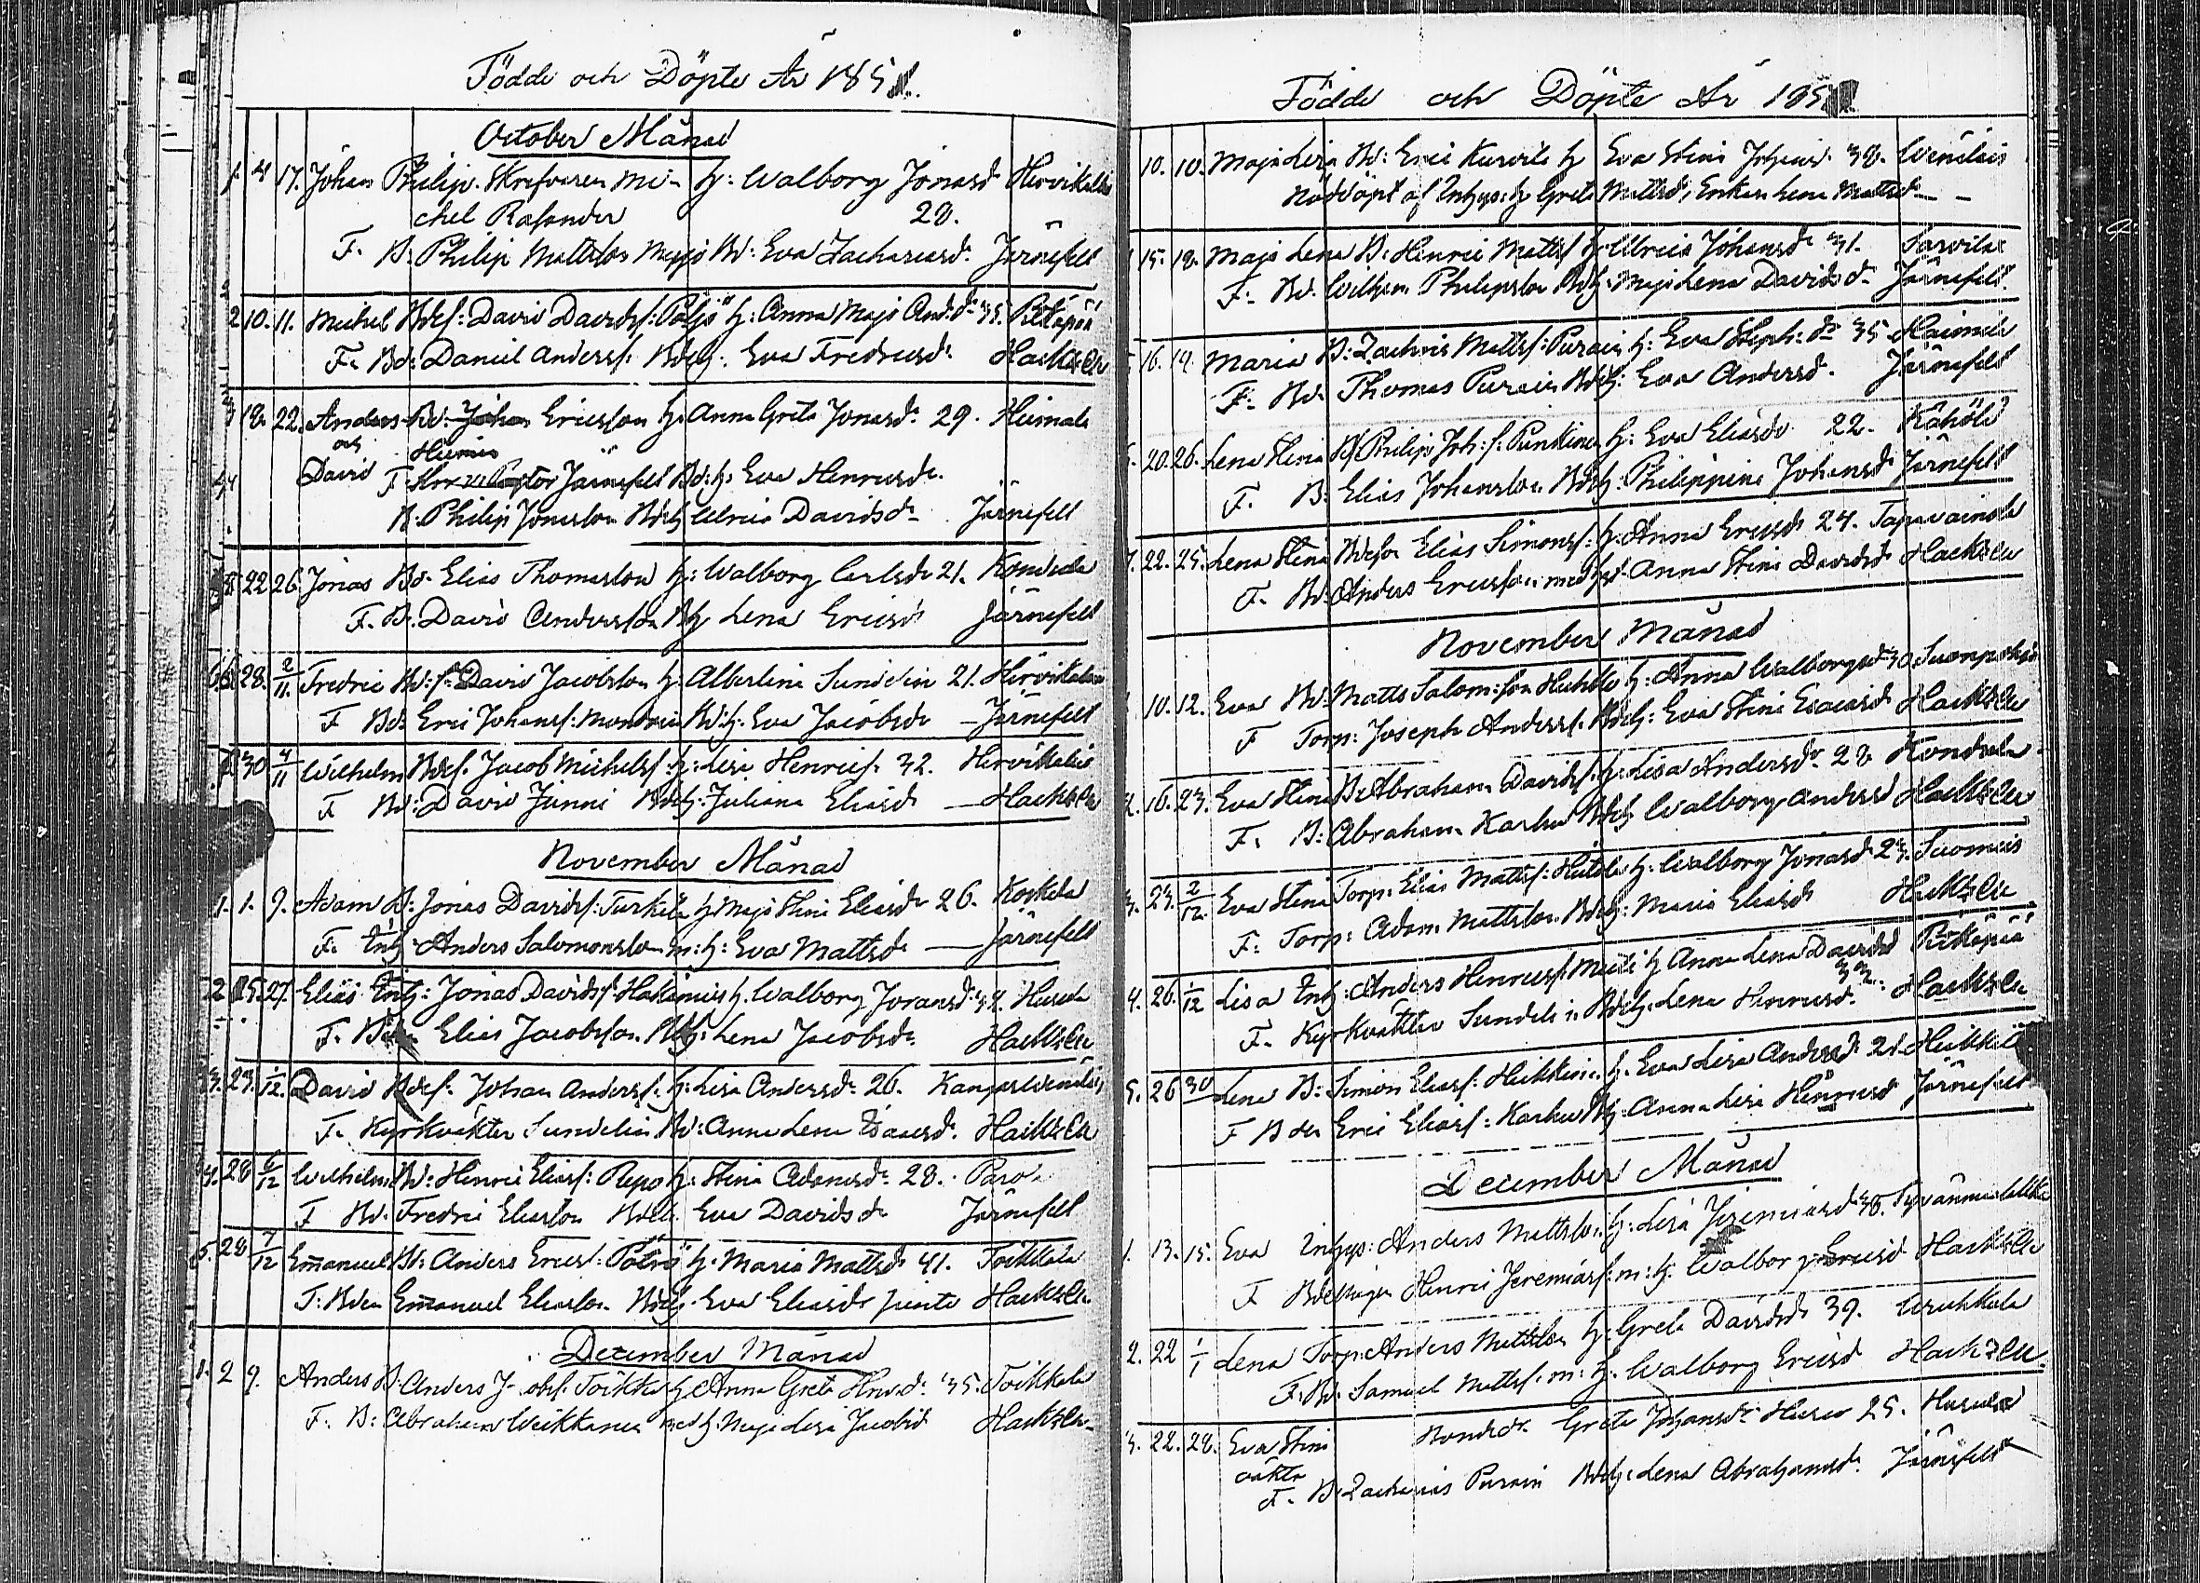 Födde och Döpte År 185
October Månad
1. 4 17. Johan Philip. Skrefvaren Mi- H: Walborg Jonasd Hirvikallio
chel Rosander 28.
F. B: Philip Mattsson Bd: Eva Zachariasd. Järnefelt
2 10. 11. Michel Bdes: David Davidss: Pöljö H: Anna Maja And:dr 35. Pitkäpää
F. Bd: Daniel Anderss: Bdeh: Eva Fredricsd. Hackzell
3 18. 22. Anders Bd: Johan Ericsson H: Anna Greta Jonasd. 29. Heimala
och Henric
4 David F. Herr Pastor Järnefelt Bd:h: Eva Henricsdr
B. Philip Jonasson Bdeh Ulrica Davidsdr Järnefelt
5 22 26 Jonas Bd. Elias Thomasson H: Walborg Carlsdr 21. Kondula
F. B. David Andersson Bh Lena Ericsdr Järnefelt
6. 28. 2/11. Fredric Bd: s: David Jacobsson H: Albertina Sundelin 21. Hirvikallio
F Bd: Eric Johanss: Bd:h: Eva Jacobsdr Järnefelt
7 30 4/11 Wilhelm Bdes. Jacob Michelss: H: Lisa Henrics: 32. Hirvikallio
F Bd: David Junni Bdeh: Juliana Eliasdr Hackzell
November Månad
1. 1. 9. Adam B: Jonas Davidss: Turkila H Maja Stina Eliasdr 26. Koskela
F. Inh: Anders Salomonsson m: h: Eva Mattsdr Järnefelt
2 25. 27. Elias Inh: Jonas Davidss: H. Walborg Joransd: 34. Hurula
F. Bden Elias Jacobsson Bdh: Lena Jacobsdr Hackzell
3. 23. 1/12. David Bdes: Johan Anderss: H: Lisa Andersdr 26. Kangasvenäläis
F. Kyrkväkter Sundelin Bd: Anna Lena Isacsd. Hackzell
4. 28 6/12 Wilhelm Bd: Henric Eliass: Repo H: Stina Adamsdr 28. Paro
F Bd. Fredric Eliasson Bdeh Eva Davidsdr Järnefelt
5. 28 7/12 Emanuel Bd: Anders Erics: Pöljö H. Maria Mattsdr 41. Toikkala
F: Bden Emanuel Eliasson Bdeh Eva Eliasdr Hackzell
December Månad
1. 2 9. Anders B: Anders Jacobss. Toikka H Anna Greta Henrd. 35. Toikkala
F. B: Abraham Weikkanen med h: Maja Lisa Jacobsd Hackzell
Födde och Döpte År 185
10. 10. Maja Lisa Bd: Eric Kurvila H Eva Stina Johans. 38. Wenäläis
Nöddöpt af Inhys: h Greta Mattsd, Enkan Lena Mattsd
15. 18. Maja Lena B. Henric Matts H: Ulrica Johansdr 31. Sarvilax
F. Bd. Wilhem Philipsson Bdh. Maja Lena Davidsdr Järnefelt.
16. 19. Maria B: Zachris Mattss: Purain H: Eva Steph:dr 35 Haimala
F: Bd. Thomas Purain Bdeh: Eva Andersd. Järnefelt
20. 26. Lena Stina Bd Philip Joh: s: Punkinen H: Eva Eliasdr 22. Kähölä
F. B: Elias Johansson Bdeh: Philippina Johansdr Järnefelt
22. 25. Lena Stina Bdeson Elias Simonss: H: Anna Ericsdr 24. Tapavainola
F. Bd: Anders Ericsson med hd. Anna Stina Davidsdr Hackzell
November Månad
10. 12. Eva Bd. Matts Salom:son Huhtla H: Anna Walborgsdr 30. Suonpohja
F Torp: Joseph Anderss. Bdeh: Eva Stina Esaiasdr Hackzell
2. 16. 23. Eva Stina B: Abraham Davids: H: Lisa Andersdr 28 Kondula
F. B: Abraham Karhu Bdeh Walborg Andersd Hackzell
3. 23. 2/12. Eva Stina Torp: Elias Mattss: Hutola H: Walborg Jonasdr 23. Suomeis
F. Torp: Adam Mattsson Bdeh: Maria Eliasdr Hackzell
4. 26. 1/12 Lisa Inh: Anders Henricss: H Anna Lena Davidsd Pitkäpää
F. Kyrkväkter Sundelin Bdeh. Lena Henricsd. 33. Hackzell
5. 26 30 Lena B: Simon Eliass: Heikkinen H. Eva Lisa Andersdr 21. Heikkilä
F Bden Eric Eliass: Karhu Bh: Anna Lisa Henricsd Järnefelt
December Månad
1. 13. 15. Eva Inhys: Anders Mattsson H: Lisa Jeremiasd 38.
F Bdemågen Henric Jeremiass: m: h: Walborg Ericsd Hackzell
2. 22 1/1 Lena Torp: Anders Mattsson H: Greta Davidsdr 39. Urukkala
F. Bd. Samuel Mattss. m: h. Walborg Ericsd Hackzell.
3. 22. 28. Eva Stina Bondedr Greta Johansdr Huru 25. Hurula
oäkta
F. B. Zacharias Purain Bdeh: Lena Abrahamsdr Järnefelt